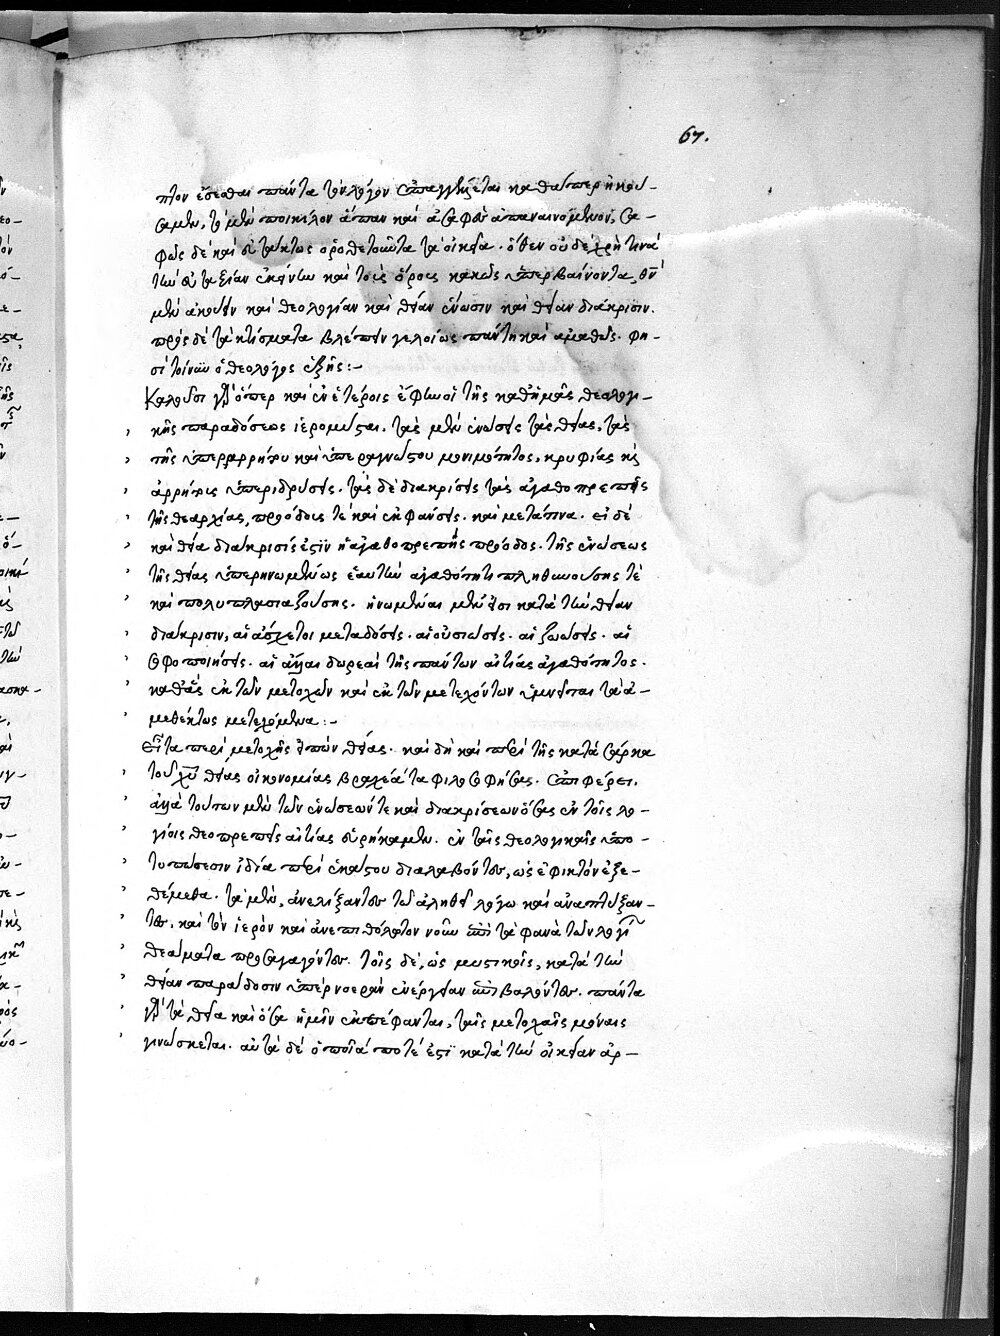 67.
πτον ἔσεσθαι πάντα τὸν λόγον ἐπαγγέλλεται καθάπερ ἠκού-
σαμεν, τὸ μὲν ποικίλον ἅπαν καὶ ἀσαφὲς ἀπαναινόμενον, σα-
φῶς δὲ καὶ εὐτάκτως ὁροθετοῦντα τὰ οἰκεῖα. ὅθεν οὐδὲ χρή τινα
τὴν εὐταξίαν ἐκείνην καὶ τοὺς ὅρους κακῶς ὑπερβαίνοντα,
μὲν ἀκούειν καὶ θεολογίαν καὶ θείαν ἕνωσιν καὶ θείαν διάκρισιν.
πρὸς δὲ τὰ κτίσματα βλέπειν γελοίως πάντη καὶ ἀμαθῶς. φη-
σὶ τοίνυν ὁ θεολόγος ἑξῆς:-
Καλοῦσι γὰρ ὅπερ καὶ ἐν ἑτέροις ἔφην οἱ τῆς καθ' ἡμᾶς θεολογι-
κῆς παραδόσεως ἱερομύσται. τὰς μὲν ἑνώσεις τὰς θείας, τὰς
τῆς ὑπεραρρήτου καὶ ὑπεραγνώστου μονιμότητος, κρυφίας καὶ
ἀρρήτους ὑπεριδρύσεις. τὰς δὲ διακρίσεις τὰς ἀγαθοπρεπεῖς
τῆς θεαρχίας, προόδους τὲ καὶ ἐκφάνσεις. καὶ μετά τινα. εἰ δὲ
καὶ θεία διάκρισίς ἐστιν ἡ ἀγαθοπρεπὴς πρόοδος. τῆς ἑνώσεως
τῆς θείας ὑπερηνωμένως ἑαυτὴν ἀγαθότητι πληθυούσης τὲ
καὶ πολυπλασιαζούσης. ἡνωμέναι μέν εἰσι κατὰ τὴν θείαν
διάκρισιν, αἱ ἄσχετοι μεταδόσεις. αἱ οὐσιώσεις. αἱ ζωώσεις. αἱ
σοφοποιήσεις. αἱ ἄλλαι δωρεαὶ τῆς πάντων αἰτίας ἀγαθότητος.
καθ' ἃς ἐκ τῶν μετοχῶν καὶ ἐκ τῶν μετεχόντων ὑμνεῖται τὰ ἀ-
μεθέκτως μετεχόμενα:-
Εἶτα περὶ μετοχῆς εἰπὼν θείας. καὶ δὴ καὶ περὶ τῆς κατὰ σάρκα
τοῦ χυ θείας οἰκονομίας βραχέα τα φιλοσοφήσας. ἐπιφέρει.
ἀλλὰ τούτων μὲν τῶν ἑνώσεών τε καὶ διακρίσεων ὅσας ἐν τοῖς λο-
γίοις θεοπρεπεῖς αἰτίας εὑρήκαμεν. ἐν ταῖς θεολογικαῖς ὑπο-
τυπώσεσιν ἰδίᾳ περὶ ἑκάστου διαλαβόντες, ὡς ἐφικτὸν ἐξε-
θέμεθα. τὰ μὲν, ἀνελίξαντες τῷ ἀληθεῖ λόγῳ καὶ ἀναπτύξαν-
τες. καὶ τὸν ἱερὸν καὶ ἀνεπιθόλωτον νοῦν ἐπὶ τὰ φανὰ τῶν λογί
θεάματα προσαγαγόντες. τοῖς δὲ, ὡς μυστικοῖς, κατὰ τὴν
θείαν παράδοσιν ὑπὲρ νοερὰν ἐνέργειαν ἐπιβαλόντες. πάντα
γὰρ τὰ θεῖα καὶ ὅσα ἡμῖν ἐκπέφανται, ταῖς μετοχαῖς μόναις
γινώσκεται. αὐτὰ δὲ ὁποῖά ποτέ ἐστι κατὰ τὴν οἰκείαν ἀρ-